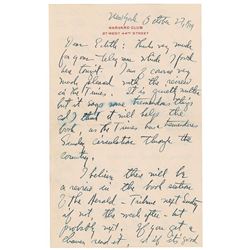 New York October 27/29
HARVARD CLUB
27 WEST 44TH STREET
Dear Edith: Thank very much
for your telegram which I found
here tonight. I am of course very
much pleased with the review
in the Times. It is quite
but it says some tremendous things
and it will help the
book, as the Times has tremendous
Sunday circulation through the
country.
I believe there will be
a review in the book section
of The Herald-Tribune next Sunday
if not, the week after - but
probably next. If you get a
chance read it, if it's good